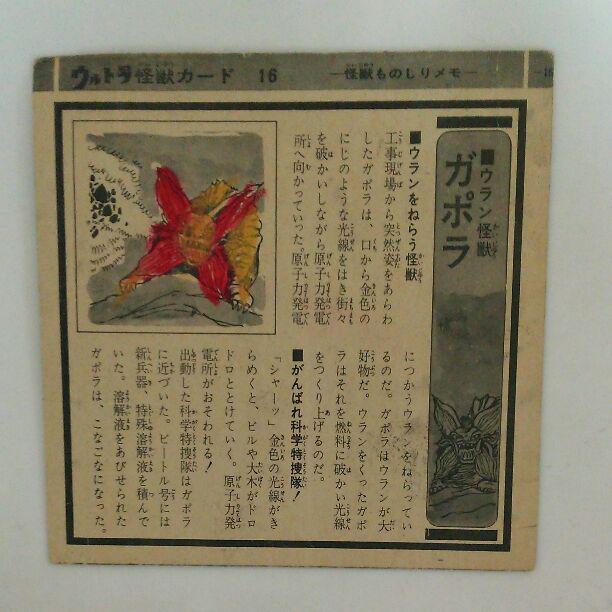 ウルトラ怪獣カード 16 ―怪獣ものしりメモ―
■ウラン怪獣
ガボラ
■ウランをねらう怪獣
工事現場から突然姿をあらわ
したガボラは、口から金色の
にじのような光線をはき街々
を破かいしながら原子力発電
所へ向かっていった。原子力発電
につかうウランをねらってい
るのだ。ガボラはウランが大
好物だ。ウランをくったガボ
ラはそれを燃料に破かい光線
をつくり上げるのだ。
■がんばれ科学特捜隊！
「シャーッ」金色の光線がき
らめくと、ビルや大木がドロ
ドロととけていく。原子力発
電所がおそわれる！
出動した科学特捜隊はガボラ
に近づいた。ビートル号には
新兵器、特殊溶解液を積んで
いた。溶解液をあびせられた
ガボラは、こなごなになった。